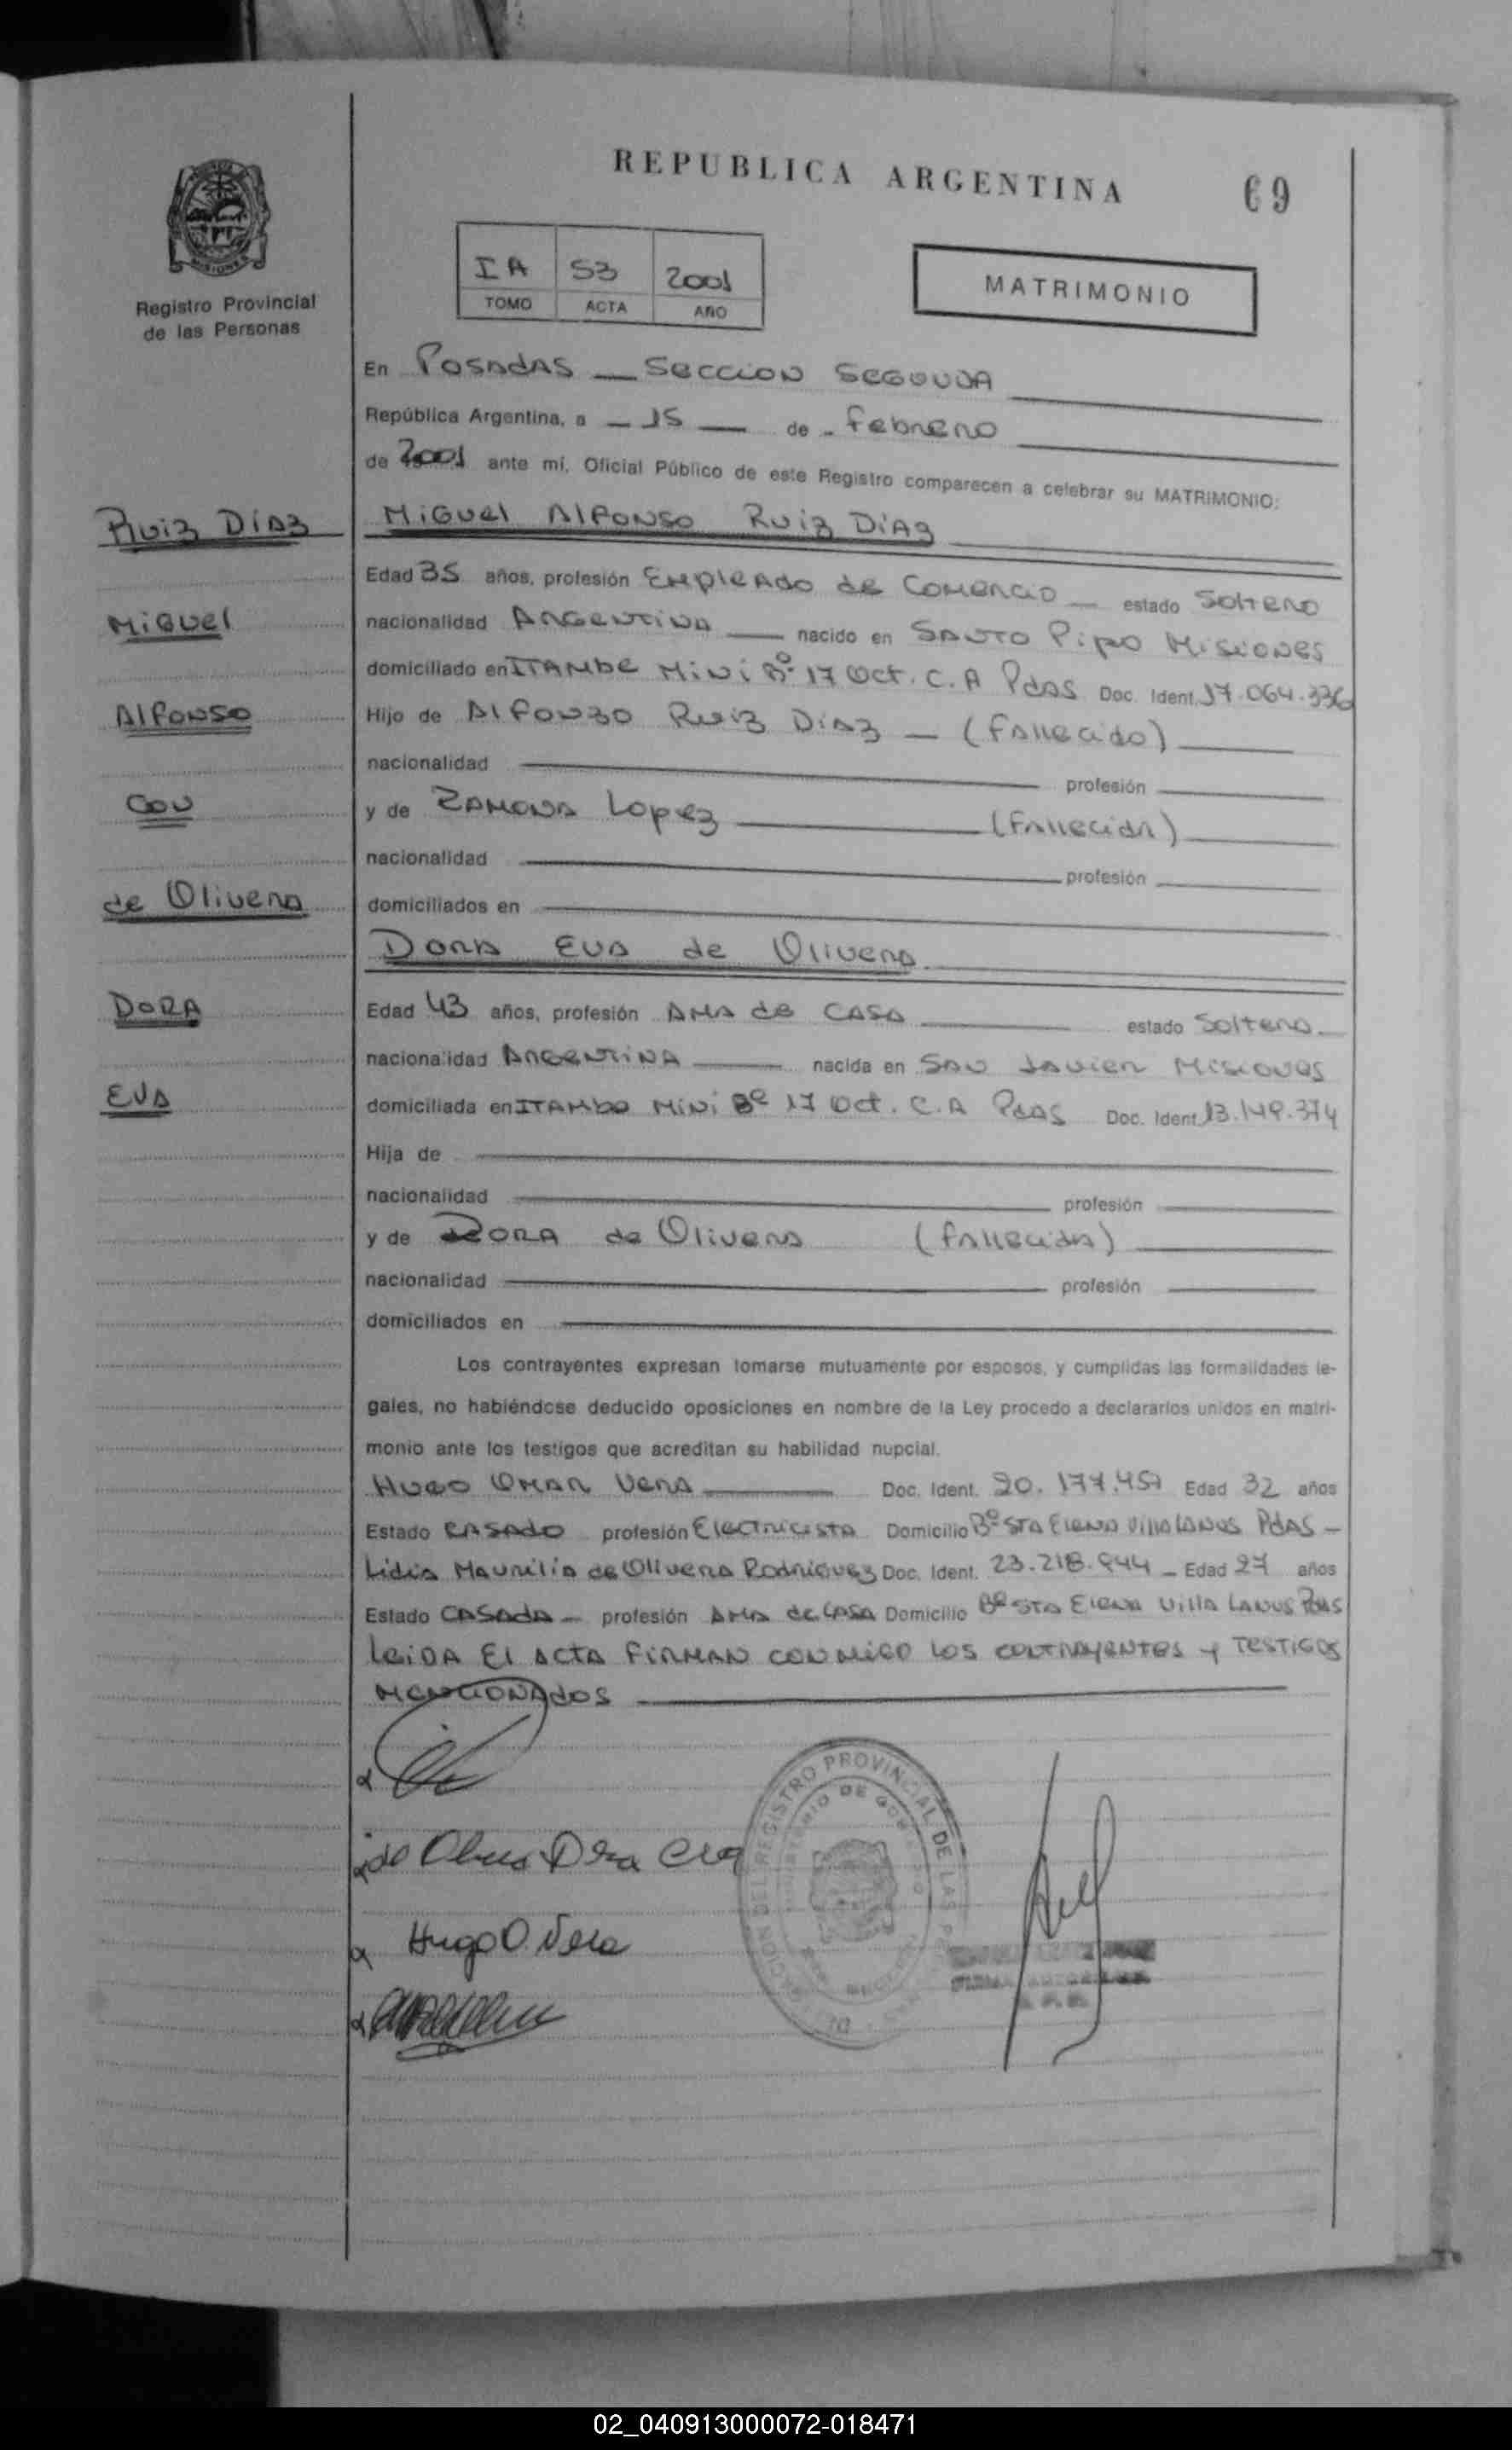 REPUBLICA ARGENTINA
69
Registro Provincial
de las Personas
MISIONES
IA 53 2001
TOMO ACTA AÑO
MATRIMONIO
En Posadas — Seccion Segunda
República Argentina, a — 15 — de - Febrero
de 2001 ante mí, Oficial Público de este Registro comparecen a celebrar su MATRIMONIO:
Ruiz Diaz
Miguel Alfonso Ruiz Diaz
Edad 35 años, profesión Empleado de Comercio — estado Soltero
Miguel
nacionalidad Argentina — nacido en Santo Pipo Misiones
domiciliado en Itambe Mini Bº 17 Oct. C.A Pdas Doc. Ident. 17.064.336
Alfonso
Hijo de Alfonzo Ruiz Diaz — (Fallecido)
nacionalidad profesión
Con
y de Ramona Lopez (Fallecida)
nacionalidad profesión
de Olivera
domiciliados en
Dora Eva de Olivera
Dora
Edad 43 años, profesión Ama de Casa estado Soltera
nacionalidad Argentina — nacida en San Javier Misiones
Eva
domiciliada en Itambe Mini Bº 17 Oct. C.A Pdas Doc. Ident. 13.149.374
Hija de
nacionalidad profesión
y de Dora de Olivera (Fallecida)
nacionalidad profesión
domiciliados en
Los contrayentes expresan tomarse mutuamente por esposos, y cumplidas las formalidades le-
gales, no habiéndose deducido oposiciones en nombre de la Ley procedo a declararlos unidos en matri-
monio ante los testigos que acreditan su habilidad nupcial.
Hugo Omar Vera Doc. Ident. 20.177.457 Edad 32 años
Estado Casado profesión Electricista Domicilio Bº Sta Elena Villa Lanus Pdas —
Lidia Maurilia de Olivera Rodriguez Doc. Ident. 23.218.944 — Edad 27 años
Estado Casada — profesión Ama de Casa Domicilio Bº Sta Elena Villa Lanus Pdas
Leida el acta firman conmigo los contrayentes y testigos
mencionados
de Olivera Dora Eva
Hugo O. Vera
REGISTRO PROVINCIAL DE LAS
02_040913000072-018471